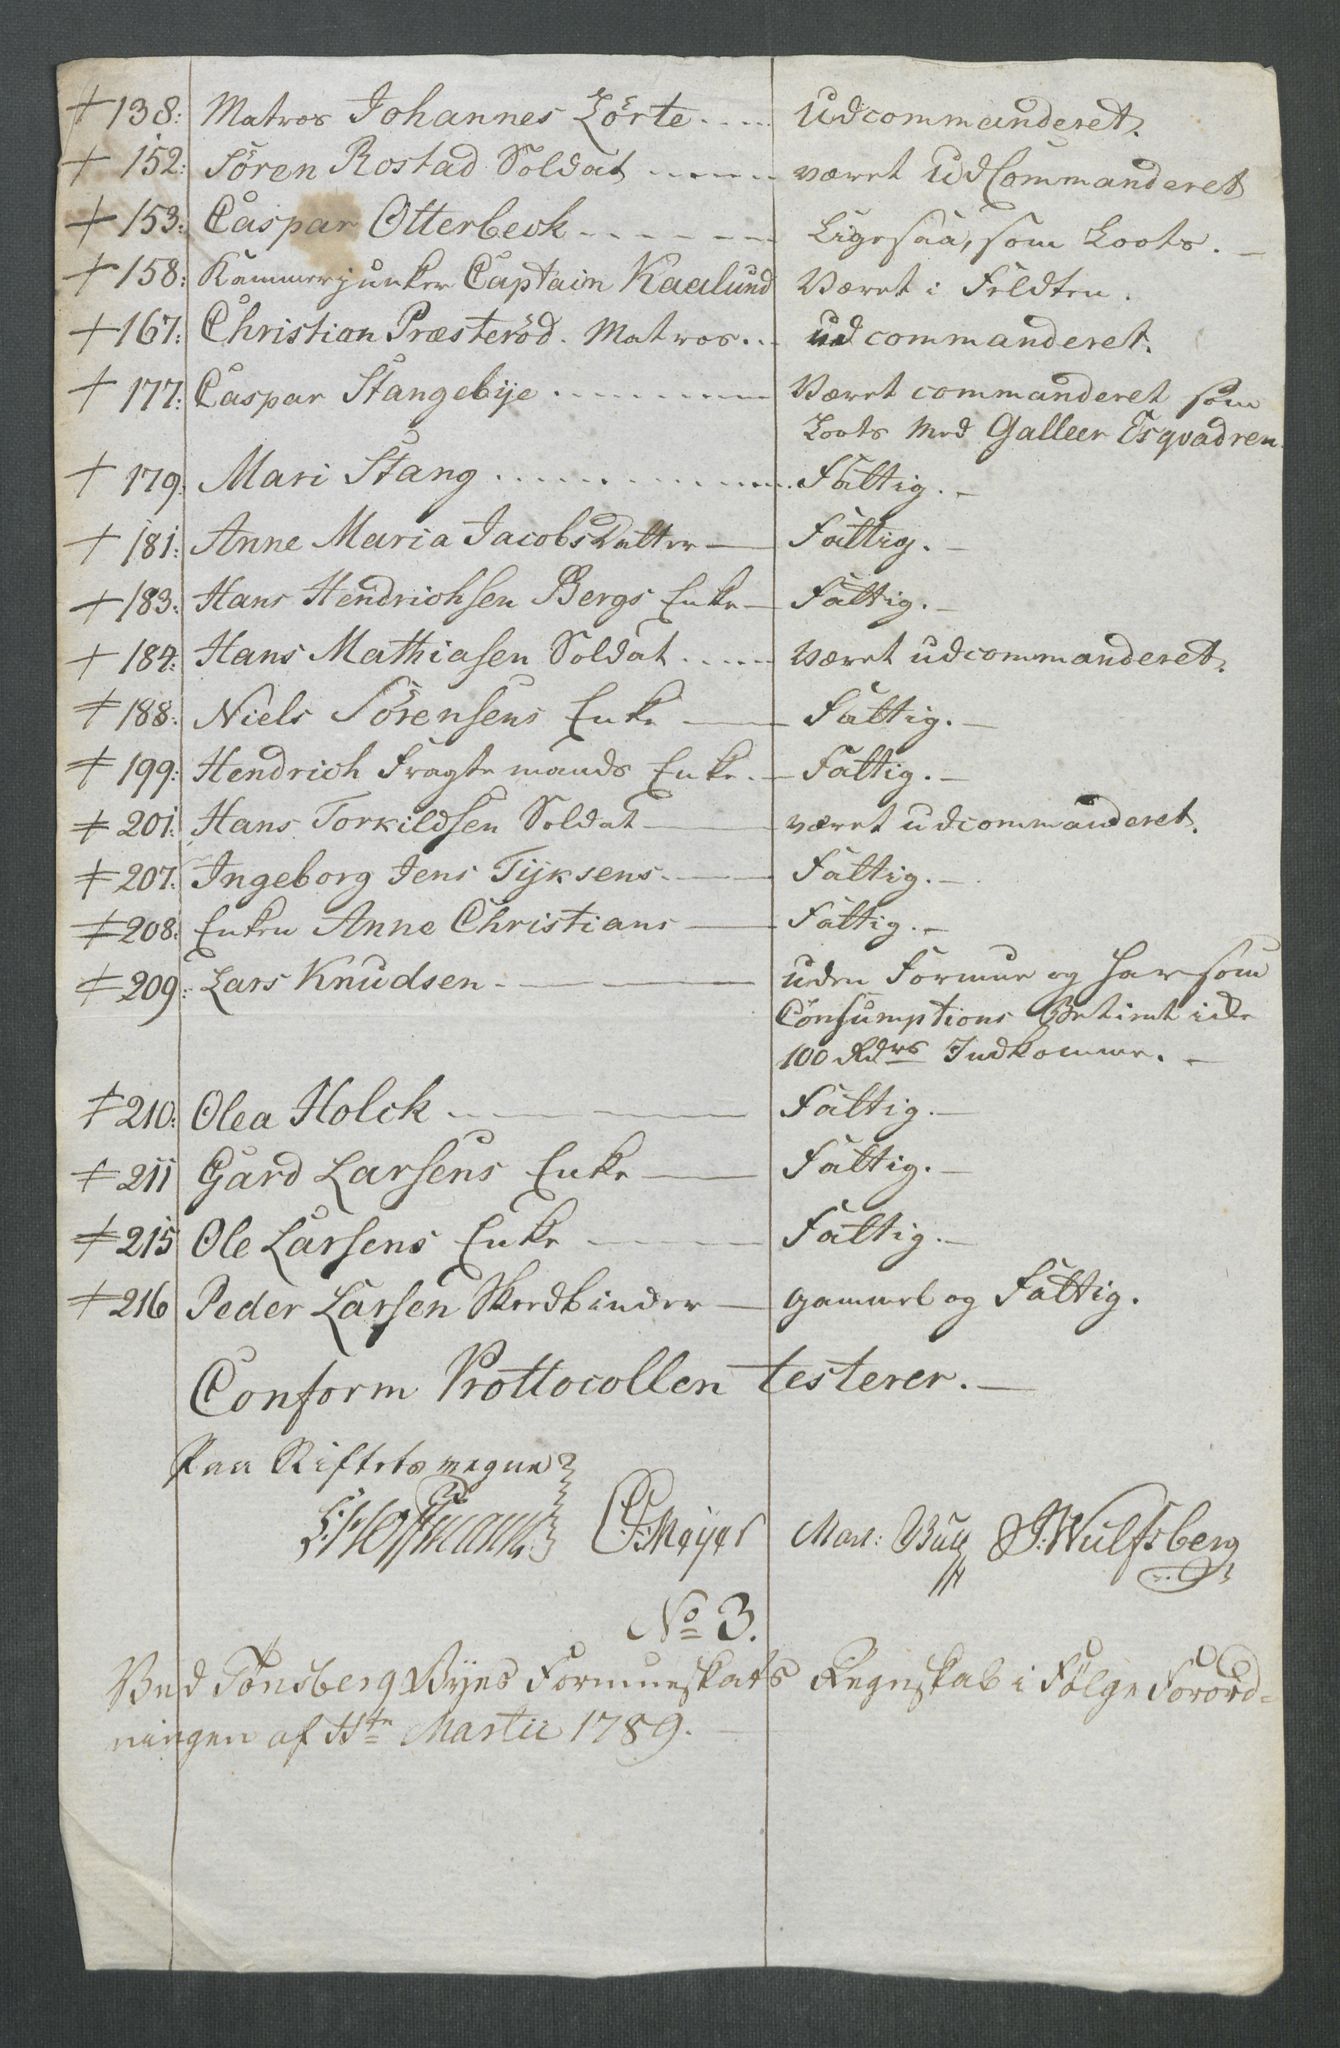 + 138: Matros Johannes Lörte . . . . . Udcommanderet.
+ 152: Sören Rostad Soldat . . . . . været UdCommanderet
+ 153: Caspar Otterbeck - - - - - - Ligesaa, som Loots. -
+ 158: Kammerjunker Captain Kaalund Været i Feldten.
+ 167: Christian Præsteröd. Matros. . . udcommanderet.
+ 177: Caspar Stangebÿe . . . . . . . . Været commanderet som
Loots med Galleer Esqvadren.
+ 179. Mari Stang . . . . . . . . . . . . Fattig. -
+ 181: Anne Maria JacobsDatter — Fattig. -
+ 183: Hans Hendrichsen Bergs Enke — Fattig. -
+ 184: Hans Mathiasen Soldat . . . . . været udcommanderet.
+ 188: Niels Sörensens Enke — Fattig. -
+ 199: Hendrich Fragtemands Enke. — Fattig. -
+ 201: Hans Torkildsen Soldat — været udcommanderet.
+ 207: Ingeborg Jens Tÿksens. — Fattig. -
+ 208: Enken Anne Christians — Fattig. -
+ 209: Lars Knudsen - — — uden Formue og har som
Consumptions Betient icke
100 Rdrs Indkomme. -
+ 210: Olea Holck - — — Fattig. -
+ 211 Gard Larsens Enke — Fattig. -
+ 215 Ole Larsens Enke — Fattig. -
+ 216 Peder Larsen Skeedbinder — gammel og Fattig.
Conform Prottocollen testerer. —
Paa Stiftets vegne
Hoffmann C: F: Meÿer Mart: Bugg J: Wulfsberg
No 3.
Ved Tönsberg Bÿes Formueskats Regnskab i Følge Forord-
ningen af 11te Martii 1789. -